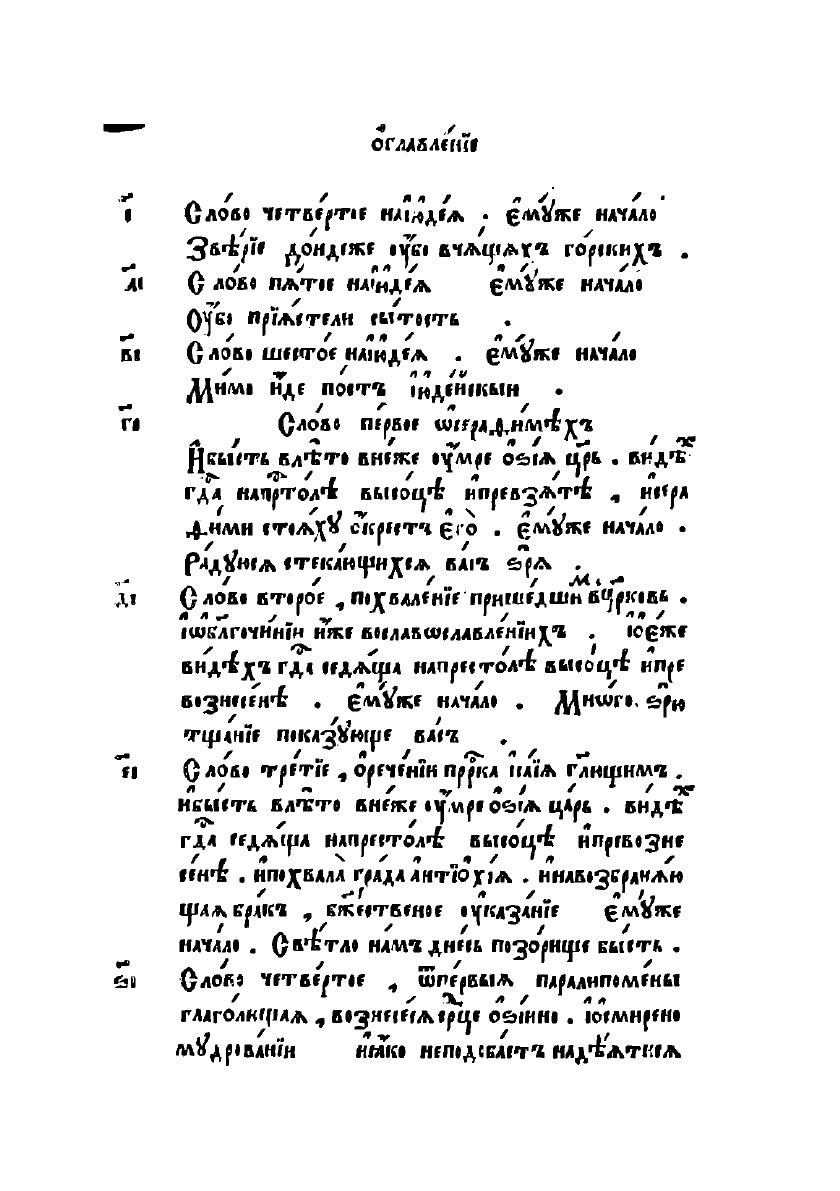 Ѻ҆главле́нїе
і҃ Сло́во четве́ртое наїꙋде́ѧ . є҆мꙋ́же нача́ло
Ѕвѣ́рїе до́ндеже ᲂу҆́бо вча́щахъ го́рскихъ .
а҃і Сло́во пѧ́тое наїꙋде́ѧ є҆мꙋ́же нача́ло
Оу҆́бо прїѧ́тели сы́тость .
в҃і Сло́во шесто́е наїꙋде́ѧ . є҆мꙋ́же нача́ло
Ми́мо и҆́де по́стъ і҆ꙋде́йскыи .
г҃і Сло́во пе́рвое ѡ҆серафи́мѣхъ
И҆бы́сть влѣ́то вне́же ᲂу҆́мре ѻ҆зі́ѧ цр҃ь . ви́дѣхъ
гд҇а напрⷭ҇то́лѣ высо́цѣ и҆превзѧ́тѣ , и҆сера
фи́ми стоѧ́хꙋ ѻ҆́крестъ є҆го̀ . є҆мꙋ́же нача́ло .
Ра́дꙋюсѧ стека́ющихсѧ ва́съ зрѧ̀ .
д҃і Сло́во второ́е , похвале́нїе прише́дшимъ вцр҃ковь .
і҆ѡ҆бл҃гочи́нїи и҆́же вославѡсла́вленїихъ . і҆ѡ҆є́же
ви́дѣхъ гд҇а седѧ́ща напресто́лѣ высо́цѣ и҆пре
вознесе́нѣ . є҆мꙋ́же нача́ло . Мно́го зрю̀
тща́нїе показꙋ́юще ва́съ .
е҃і Сло́во тре́тїе , ѻ҆рече́нїи прⷪ҇рка и҆са́їѧ гл҃ющимъ .
и҆бы́сть влѣ́то вне́же ᲂу҆́мре ѻ҆зі́ѧ ца́рь . ви́дѣхъ
гд҇а седѧ́ща напресто́лѣ высо́цѣ и҆превозне
се́нѣ . и҆похвала̀ гра́да а҆нтїѻхі́ѧ . и҆навозбранѧ́ю
щаѧ бра́къ , бж҇е́ственое ᲂу҆каза́нїе є҆мꙋ́же
нача́ло . Свѣ́тло на́мъ дне́сь позо́рище бы́сть .
ѕ҃і Сло́во четве́ртое , ѿпе́рвыѧ паралипоме́ны
глаго́лющаѧ , вознесе́сѧ срⷣце ѻ҆зі́ино . і҆ѡ҆смирено
мꙋ́дрованїи и҆ꙗ҆́ко неподоба́етъ надѣ́ѧтисѧ